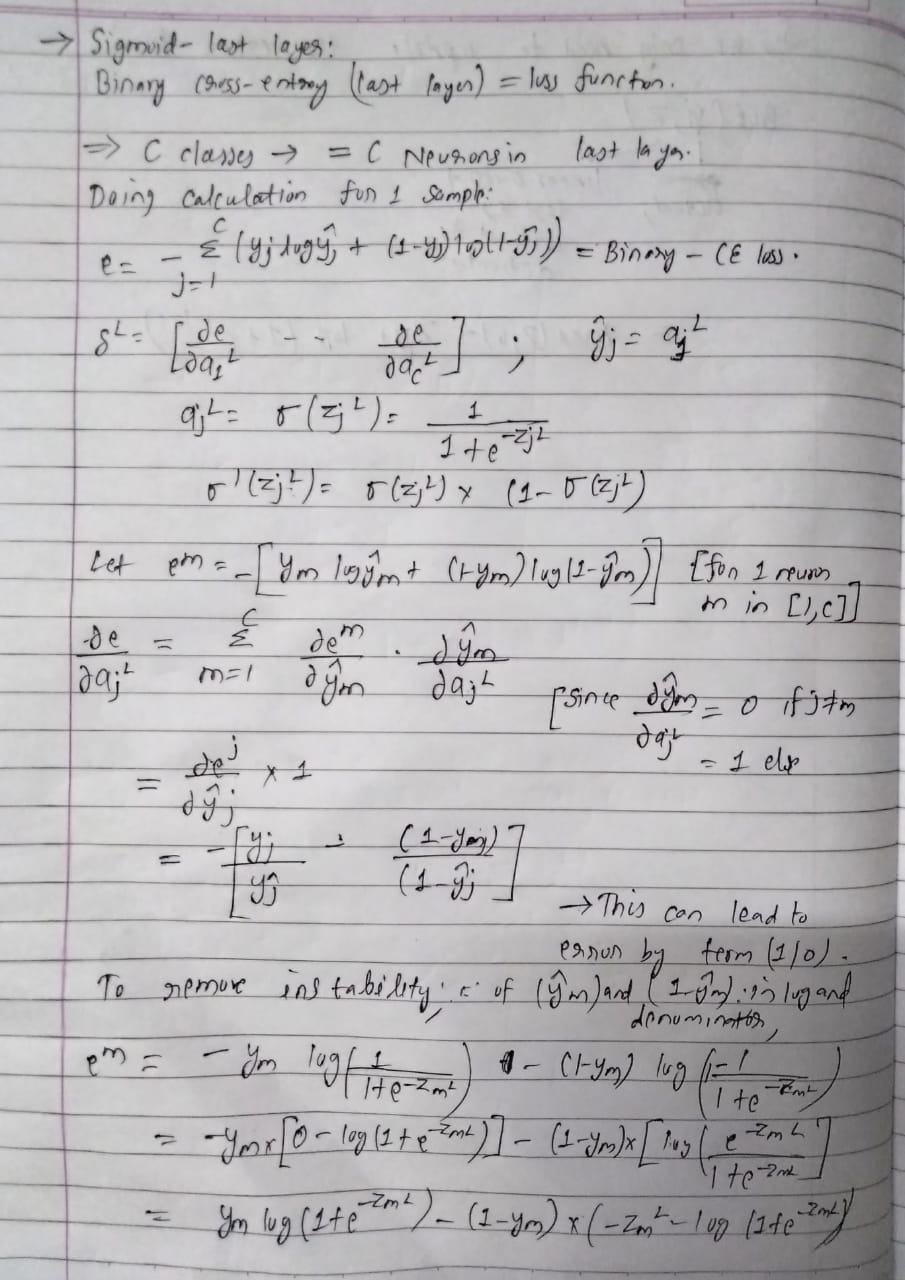 → Sigmoid- last layer:
Binary cross-entropy (last layer) = loss function.
⇒ C classes → = C Neurons in last layer.
Doing calculation for 1 sample:
e = - Σ_{j=1}^{C} (yj log ŷj + (1-yj) log(1-ŷj)) = Binary - CE loss.
δ^L = [∂e/∂a₁^L - - - ∂e/∂a_c^L] ; ŷj = aj^L
aj^L = σ(zj^L) = 1/(1+e^{-zj^L})
σ'(zj^L) = σ(zj^L) × (1-σ(zj^L)
Let e^m = -[ym log ŷm + (1-ym) log(1-ŷm)] [for 1 neuron
m in [1,C]]
∂e/∂aj^L = Σ_{m=1}^{C} ∂e^m/∂ŷm · ∂ŷm/∂aj^L
[Since ∂ŷm/∂aj^L = 0 if j≠m
= 1 else
= ∂e^j/∂ŷj × 1
= -[yj/ŷj - (1-yj)/(1-ŷj]
→ This can lead to
error by term (1/0).
To remove instability of (ŷm) and (1-ŷm) in log and
denominator,
e^m = - ym log(1/(1+e^{-zm^L})) - (1-ym) log(1-1/(1+e^{-zm^L}))
= -ym×[0-log(1+e^{-zm^L})] - (1-ym)×[log(e^{-zm^L}/(1+e^{-zm^L}]
= ym log(1+e^{-zm^L}) - (1-ym) × (-zm^L - log(1+e^{-zm^L})